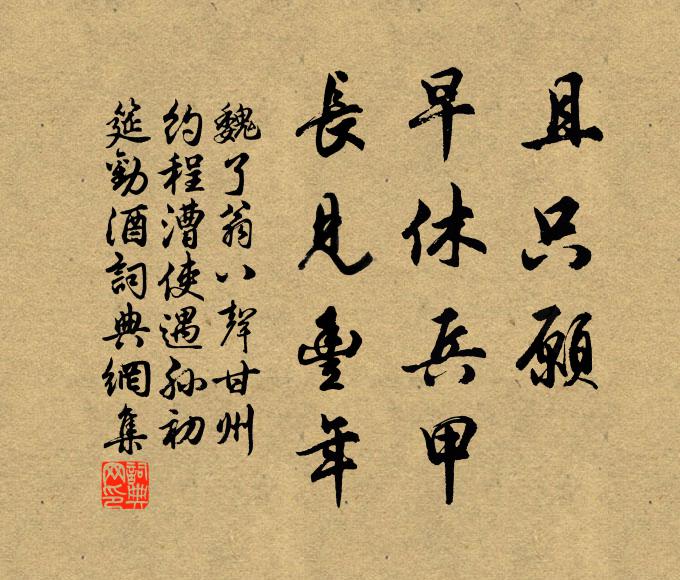 且只願
早休兵甲
長見豐年
魏了翁八聲甘州
約程漕使遇孫初
筵勸酒詞典網集
詞典网印